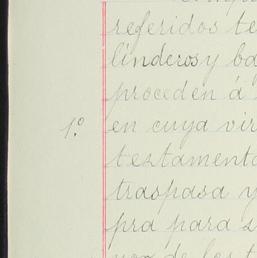 referidos te
linderos y ba
proceden á
1.º en cuya vir
testamento
traspasa y
pra para s